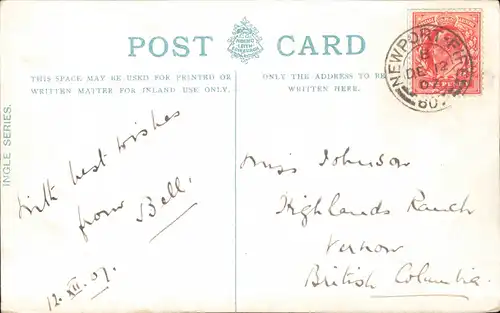 POST CARD
THIS SPACE MAY BE USED FOR PRINTED OR
WRITTEN MATTER FOR INLAND USE ONLY.
ONLY THE ADDRESS TO BE
WRITTEN HERE.
INGLE SERIES.
With best wishes
from Bell.
12.XII.07.
NEWPORT-FIFE
DE 12
07
ONE PENNY
Miss Johnson
Highlands Ranch
Vernon
British Columbia.